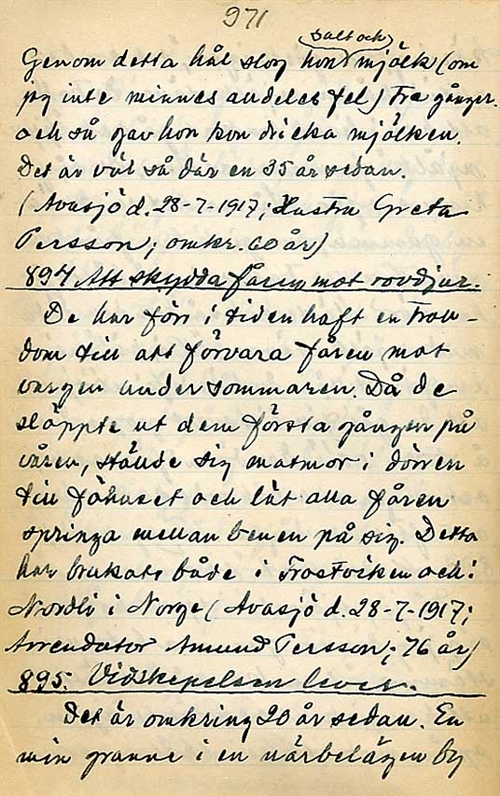 971
salt och
Genom detta hål slog hon mjölk (om
jag inte minnes alldeles fel) tre gånger
och så gav hon kon dricka mjölken.
Det är väl så där en 35 år sedan.
(Avasjö d. 28-7-1917; Hustru Greta
Persson; omkr. 60 år)
894 Att skydda fåren mot rovdjur.
De har förr i tiden haft en trol-
dom till att förvara fåren mot
vargen under sommaren. Då de
släppte ut dem första gången på
våren, stälde sig matmor i dörren
till fähuset och lät alla fåren
springa mellan benen på sig. Detta
har brukats både i Frostviken och i
Nordli i Norge (Avasjö d. 28-7-1917;
Arrendator Amund Persson; 76 år)
895. Vidskepelsen lever.
Det är omkring 20 år sedan. En
min granne i en närbelägen by